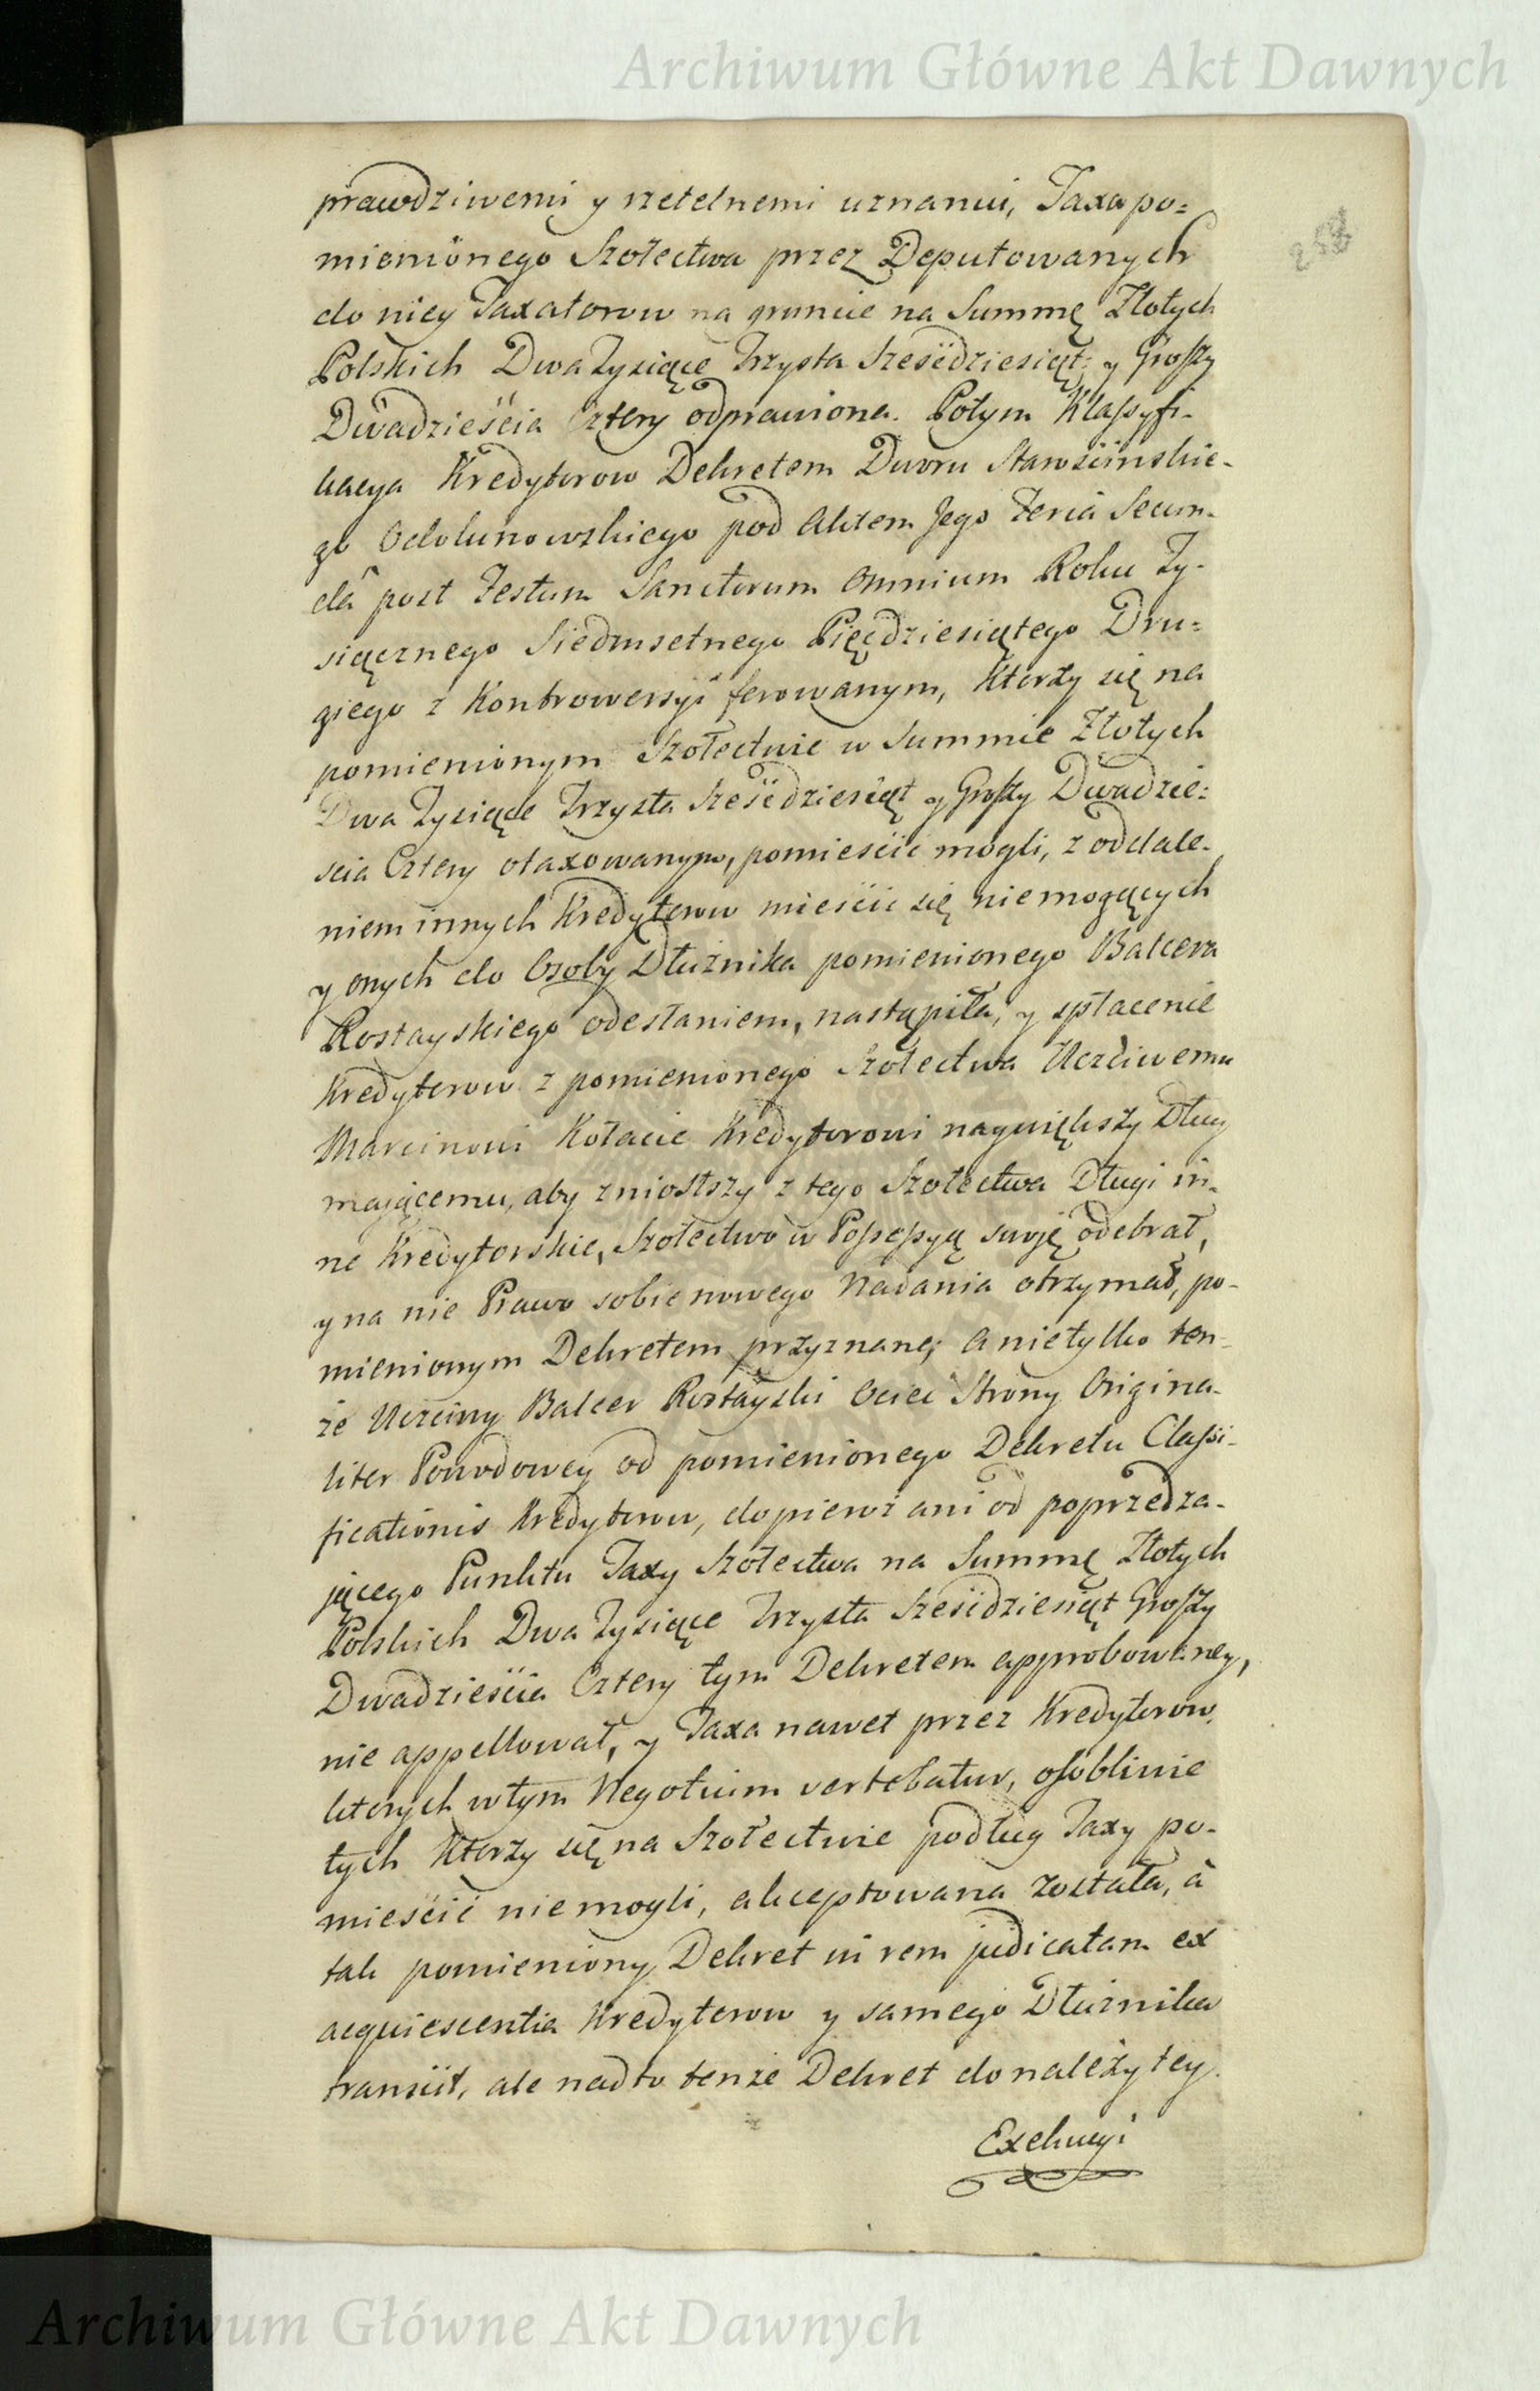 Archiwum Główne Akt Dawnych
258
prawdziwemi y rzetelnemi uznanui, Taxa po=
mienionego Szołectwa przez Deputowanych
do niey Taxatorow na gruncie na Summę Złotych
Polskich Dwa Tysiące Trzysta Sześćdziesiąt, y Groszy
Dwadzieścia Cztery odprawiona. Potym Klassyfi-
kacya Kredytorow Dekretem Dworu Starościnskie-
go Odolanowskiego pod Aktem Jego Feria Secun-
da post Festum Sanctorum Omnium Roku Ty-
siącznego Siedmsetnego Pięćdziesiątego Dru=
giego z Kontrowersyi ferowanym, Ktorzy się na
pomienionym Szołectwie w Summie Złotych
Dwa Tysiące Trzysta Sześćdziesiąt y Groszy Dwadzie=
scia Cztery otaxowanym, pomieścić mogli, z oddale-
niem innych Kredytorow mieścić się niemogących
y onych do Osoby Dłużnika pomienionego Balcera
Rostayskiego odesłaniem, nastąpiła, y spłacenie
Kredytorow z pomienionego Szołectwa Uczciwemu
Marcinowi Kołacie Kredytorowi naywiększy Dług
mającemu, aby zniosłszy z tego Szołectwa Długi in-
ne Kredytorskie, Szołectwo w Possessyą swoję odebrał,
y na nie Prawo sobie nowego Nadania otrzymał, po-
mienionym Dekretem przyznane; a nietylko ten-
że Uczciwy Balcer Rostayski Ociec Strony Origina-
liter Powodowey od pomienionego Dekretu Classi-
ficationis Kredytorow, dopiero ani od poprzedza-
jącego Punktu Taxy Szołectwa na Summę Złotych
Polskich Dwa Tysiące Trzysta Sześćdziesiąt Groszy
Dwadzieścia Cztery tym Dekretem approbowaney,
nie appellował, y Taxa nawet przez Kredytorow,
ktorych w tym Negotium vertebatur, osobliwie
tych Ktorzy się na Szołectwie podług Taxy po-
mieścić niemogli, akceptowana została, a
tak pomieniony Dekret in rem judicatam ex
acquiescentia Kredytorow y samego Dłużnika
transiit, ale nadto tenże Dekret do należytey
Exekucyi
Archiwum Główne Akt Dawnych